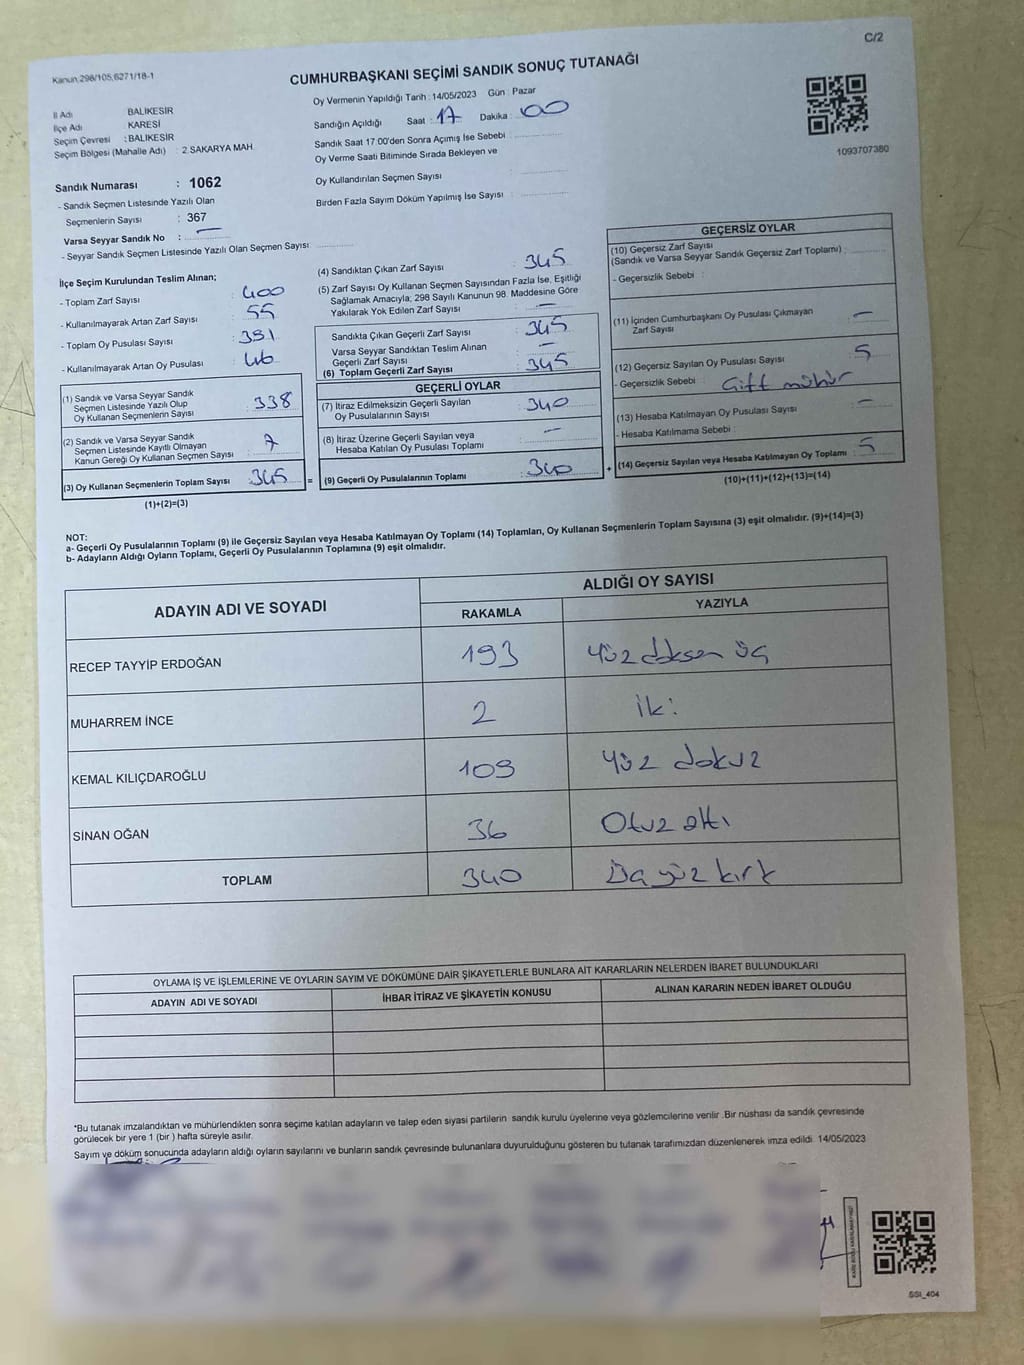 C/2
Kanun:298/105,6271/18-1
CUMHURBAŞKANI SEÇİMİ SANDIK SONUÇ TUTANAĞI
İl Adı BALIKESİR
İlçe Adı KARESİ
Seçim Çevresi : BALIKESİR
Seçim Bölgesi (Mahalle Adı) : 2.SAKARYA MAH.
Oy Vermenin Yapıldığı Tarih : 14/05/2023 Gün : Pazar
Sandığın Açıldığı Saat : 17 Dakika : 00
Sandık Saat 17:00'den Sonra Açımış İse Sebebi :
Oy Verme Saati Bitiminde Sırada Bekleyen ve
Oy Kullandırılan Seçmen Sayısı :
Birden Fazla Sayım Döküm Yapılmış İse Sayısı :
1093707380
Sandık Numarası : 1062
- Sandık Seçmen Listesinde Yazılı Olan
Seçmenlerin Sayısı : 367
Varsa Seyyar Sandık No : —
- Seyyar Sandık Seçmen Listesinde Yazılı Olan Seçmen Sayısı :
İlçe Seçim Kurulundan Teslim Alınan;
- Toplam Zarf Sayısı : 400
- Kullanılmayarak Artan Zarf Sayısı : 55
- Toplam Oy Pusulası Sayısı : 391
- Kullanılmayarak Artan Oy Pusulası : 46
(1) Sandık ve Varsa Seyyar Sandık
Seçmen Listesinde Yazılı Olup
Oy Kullanan Seçmenlerin Sayısı : 338
(2) Sandık ve Varsa Seyyar Sandık
Seçmen Listesinde Kayıtlı Olmayan
Kanun Gereği Oy Kullanan Seçmen Sayısı : 7
(3) Oy Kullanan Seçmenlerin Toplam Sayısı : 345
(1)+(2)=(3)
(4) Sandıktan Çıkan Zarf Sayısı : 345
(5) Zarf Sayısı Oy Kullanan Seçmen Sayısından Fazla İse, Eşitliği
Sağlamak Amacıyla; 298 Sayılı Kanunun 98. Maddesine Göre
Yakılarak Yok Edilen Zarf Sayısı : —
Sandıkta Çıkan Geçerli Zarf Sayısı : 345
Varsa Seyyar Sandıktan Teslim Alınan
Geçerli Zarf Sayısı : —
(6) Toplam Geçerli Zarf Sayısı : 345
GEÇERLİ OYLAR
(7) İtiraz Edilmeksizin Geçerli Sayılan
Oy Pusulalarının Sayısı : 340
(8) İtiraz Üzerine Geçerli Sayılan veya
Hesaba Katılan Oy Pusulası Toplamı : —
= (9) Geçerli Oy Pusulalarının Toplamı : 340 +
GEÇERSİZ OYLAR
(10) Geçersiz Zarf Sayısı
(Sandık ve Varsa Seyyar Sandık Geçersiz Zarf Toplamı) :
- Geçersizlik Sebebi :
(11) İçinden Cumhurbaşkanı Oy Pusulası Çıkmayan
Zarf Sayısı : —
(12) Geçersiz Sayılan Oy Pusulası Sayısı : 5
- Geçersizlik Sebebi : Çift mühür
(13) Hesaba Katılmayan Oy Pusulası Sayısı : —
- Hesaba Katılmama Sebebi :
(14) Geçersiz Sayılan veya Hesaba Katılmayan Oy Toplamı : 5
(10)+(11)+(12)+(13)=(14)
NOT:
a- Geçerli Oy Pusulalarının Toplamı (9) ile Geçersiz Sayılan veya Hesaba Katılmayan Oy Toplamı (14) Toplamları, Oy Kullanan Seçmenlerin Toplam Sayısına (3) eşit olmalıdır. (9)+(14)=(3)
b- Adayların Aldığı Oyların Toplamı, Geçerli Oy Pusulalarının Toplamına (9) eşit olmalıdır.
ADAYIN ADI VE SOYADI ALDIĞI OY SAYISI
RAKAMLA YAZIYLA
RECEP TAYYİP ERDOĞAN 193 Yüz doksan üç
MUHARREM İNCE 2 iki
KEMAL KILIÇDAROĞLU 109 Yüz dokuz
SİNAN OĞAN 36 Otuz altı
TOPLAM 340 Üç yüz kırk
OYLAMA İŞ VE İŞLEMLERİNE VE OYLARIN SAYIM VE DÖKÜMÜNE DAİR ŞİKAYETLERLE BUNLARA AİT KARARLARIN NELERDEN İBARET BULUNDUKLARI
ADAYIN ADI VE SOYADI İHBAR İTİRAZ VE ŞİKAYETİN KONUSU ALINAN KARARIN NEDEN İBARET OLDUĞU
*Bu tutanak imzalandıktan ve mühürlendikten sonra seçime katılan adayların ve talep eden siyasi partilerin sandık kurulu üyelerine veya gözlemcilerine verilir .Bir nüshası da sandık çevresinde
görülecek bir yere 1 (bir ) hafta süreyle asılır.
Sayım ve döküm sonucunda adayların aldığı oyların sayılarını ve bunların sandık çevresinde bulunanlara duyurulduğunu gösteren bu tutanak tarafımızdan düzenlenerek imza edildi. 14/05/2023
SSI_404